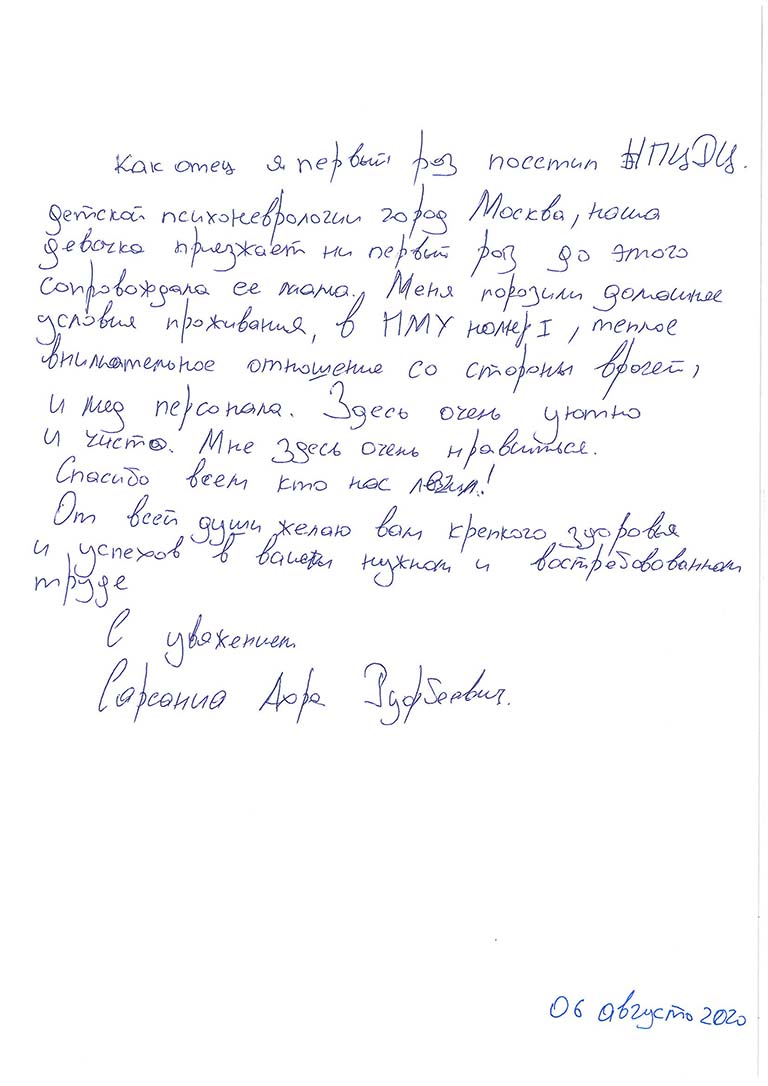 Как отец я первый роз посетил НПЦДЦ.
детской психоневрологии город Москва, наша
девочка приезжает ни первый роз до этого
сопровождала ее мама. Меня порозили домашнее
условия проживания, в ПМУ номер I, теплое
внимательное отношение со стороны врочей,
и мед персонала. Здесь очень уютно
и чисто. Мне здесь очень нравиться.
Спасибо всем кто нас лечил!
От всей души желаю вам крепкого здоровья
и успехов в вашем нужном и востребованном
труде
С уважением
Сарсания
06 августо 2020